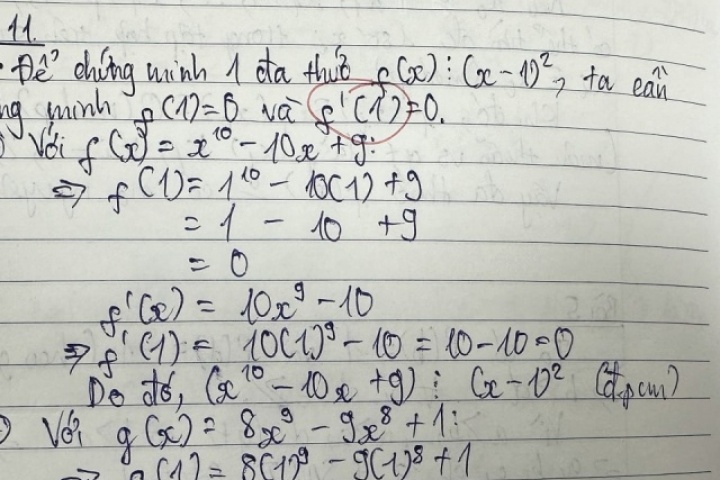 11.
Để chứng minh 1 đa thức f(x) ⋮ (x-1)², ta cần
ng minh f(1)=0 và f'(1)=0.
) Với f(x) = x¹⁰ - 10x + 9:
⇒ f(1) = 1¹⁰ - 10(1) + 9
= 1 - 10 + 9
= 0
f'(x) = 10x⁹ - 10
⇒ f'(1) = 10(1)⁹ - 10 = 10 - 10 = 0
Do đó, (x¹⁰ - 10x + 9) ⋮ (x-1)² (đpcm)
) Với g(x) = 8x⁹ - 9x⁸ + 1:
⇒ g(1) = 8(1)⁹ - 9(1)⁸ + 1